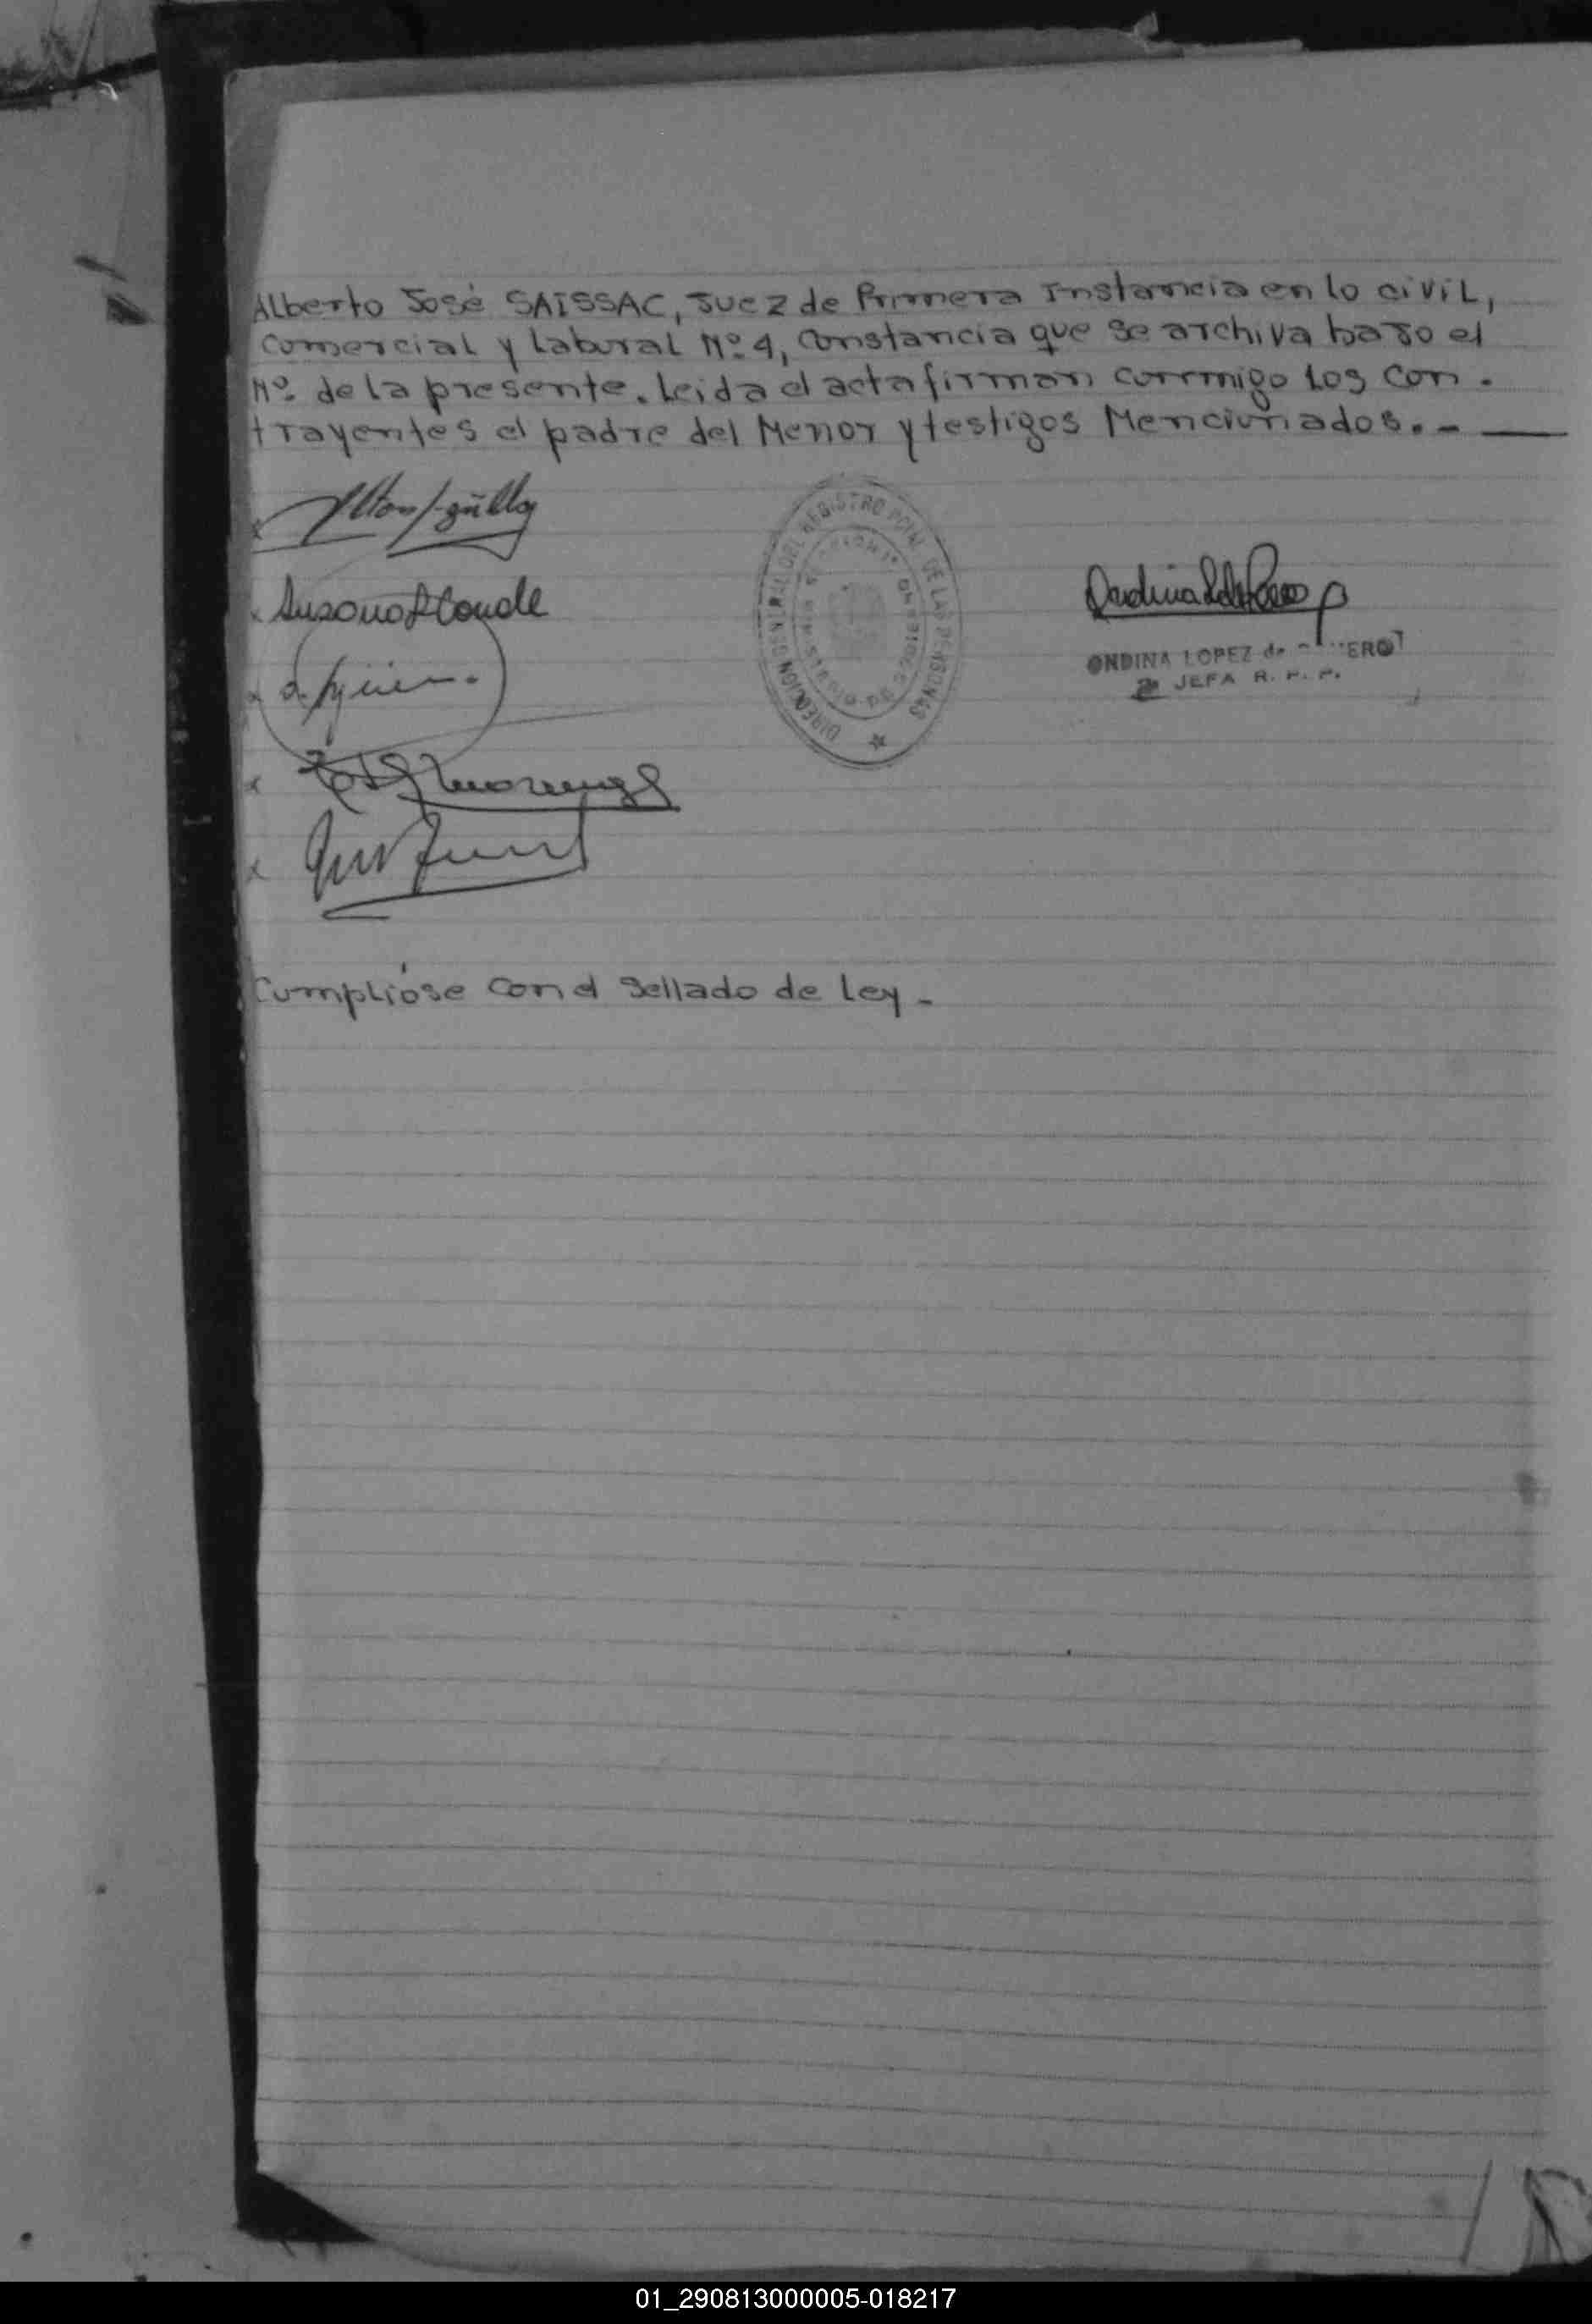 Alberto José SAISSAC, Juez de Primera Instancia en lo civil,
Comercial y Laboral Nº 4, constancia que se archiva bajo el
Nº de la presente. Leida el acta firman conmigo los con-
trayentes el padre del Menor y testigos Mencionados.-
Susana Conde
DIRECCION GENERAL DEL REGISTRO PCIAL DE LAS PERSONAS
ONDINA LOPEZ de
JEFA R. P. P.
Cumplióse con el sellado de Ley -
01_290813000005-018217